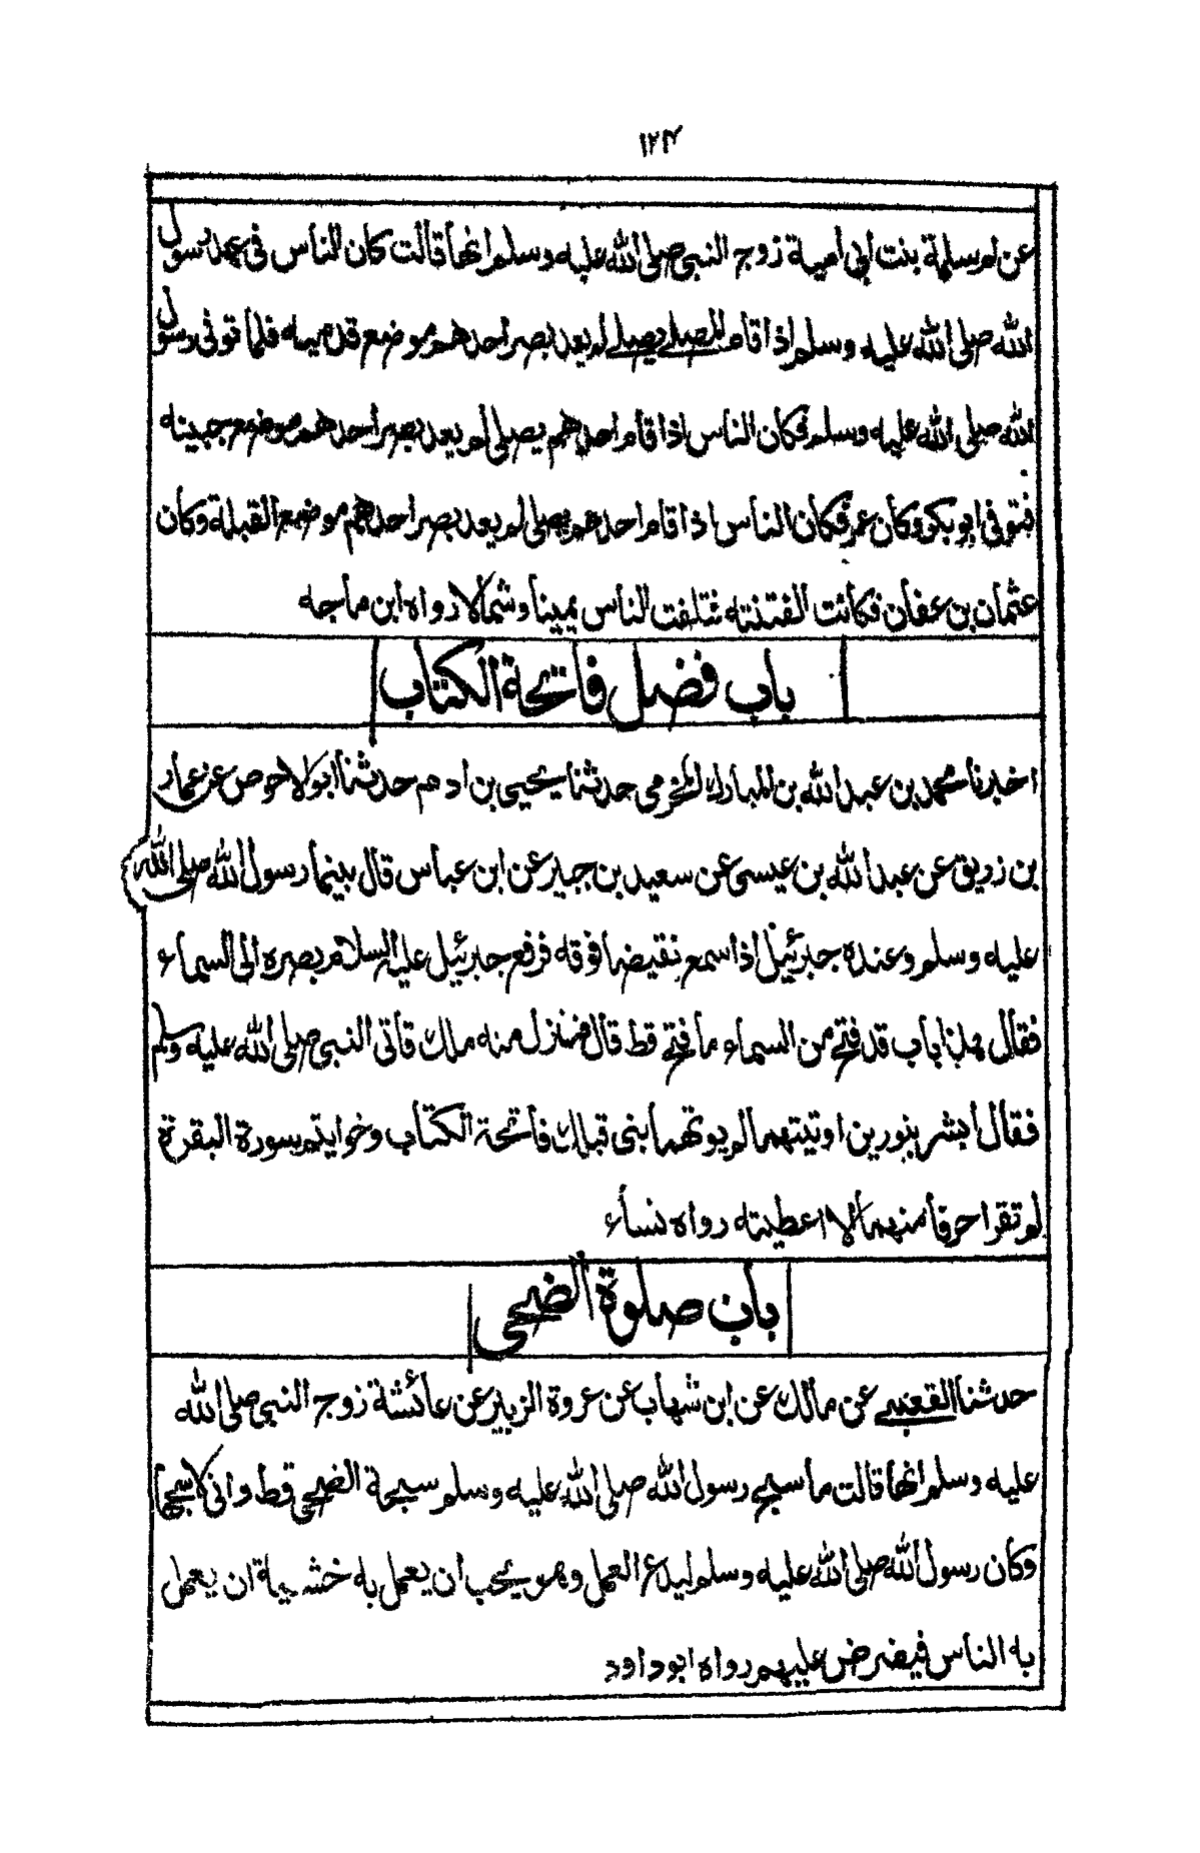 ۱۲۴
عن ام سلمة بنت ابي امية زوج النبي صلى الله عليه وسلم انها قالت كان الناس في عهد رسول
الله صلى الله عليه وسلم اذا قام المصلے يصلے لم يعد بصر احدهم موضع قدميه فلما توفى رسول
الله صلى الله عليه وسلم فكان الناس اذا قام احدهم يصلي لم يعد بصر احدهم موضع جبينه
فتوفى ابو بكر وكان عمر فكان الناس اذا قام احدهم يصلى لم يعد بصر احدهم موضع القبلة وكان
عثمان بن عفان فكانت الفتنته فتلفت الناس يمينا وشمالا رواه ابن ماجه
باب فضل فاتحة الكتاب
اخبرنا محمد بن عبد الله بن المبارك المخرمي حدثنا يحيى بن ادم حدثنا ابو الاحوص عن عمار
بن زريق عن عبد الله بن عيسى عن سعيد بن جبير عن ابن عباس قال بينما رسول الله صلى الله
عليه وسلم وعنده جبرئيل اذا سمع نقيضا فوقه فرفع جبرئيل عليه السلام بصره الى السماء
فقال هذا باب قد فتح من السماء ما فتح قط قال فنزل منه ملك فاتى النبي صلى الله عليه وسلم
فقال ابشر بنورين اوتيتهما لم يوتهما نبى قبلك فاتحة الكتاب وخواتيم سورة البقرة
لم تقرا حرفا منهما الا اعطيته رواه نساء
باب صلوة الضحى
حدثنا القعنبے عن مالك عن ابن شهاب عن عروة الزبير عن عائشة زوج النبي صلى الله
عليه وسلم انها قالت ما سبح رسول الله صلى الله عليه وسلم سبحة الضحى قط وانى لاسبحها
وكان رسول الله صلى الله عليه وسلم ليدع العمل وهو يحب ان يعمل به خشية ان يعمل
به الناس فيضرض عليهم رواه ابوداود